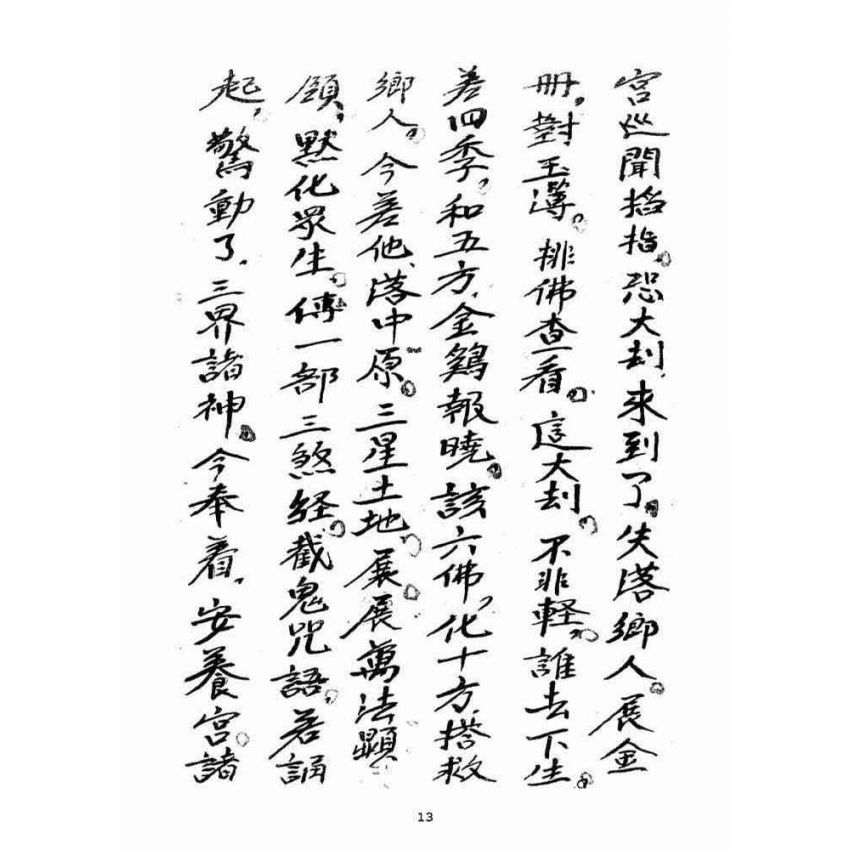 宮巡聞掐指。恐大刦，來到了。失落鄉人。展金
冊，對玉簿。排佛查看。這大刦。不非輕。誰去下生。
差四季，和五方，金鷄報曉。該六佛，化十方，搭救
鄉人。今差他，落中原。三星土地。展展萬法顯
領，默化眾生。傳一部三煞経。截鬼咒語，若誦
起，驚動了，三界諸神。今奉着，安養宮。諸
13